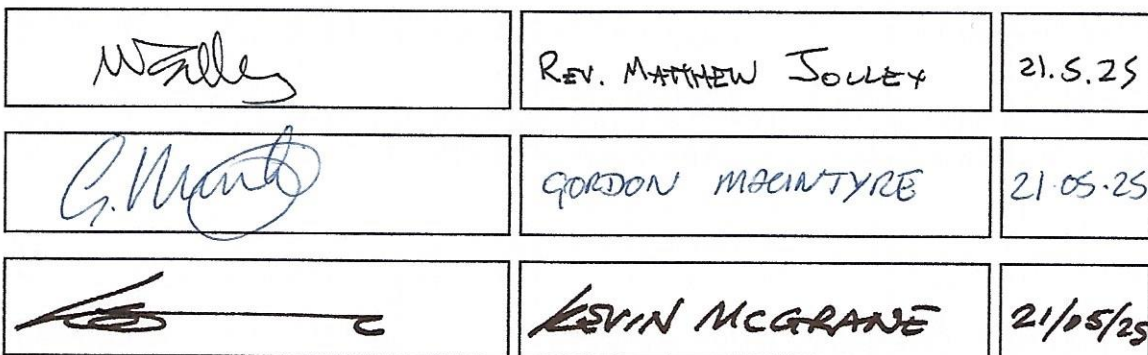 REV. MATTHEW JOLLEY 21.5.25
GORDON MACINTYRE 21.05.25
KEVIN MCGRANE 21/05/25